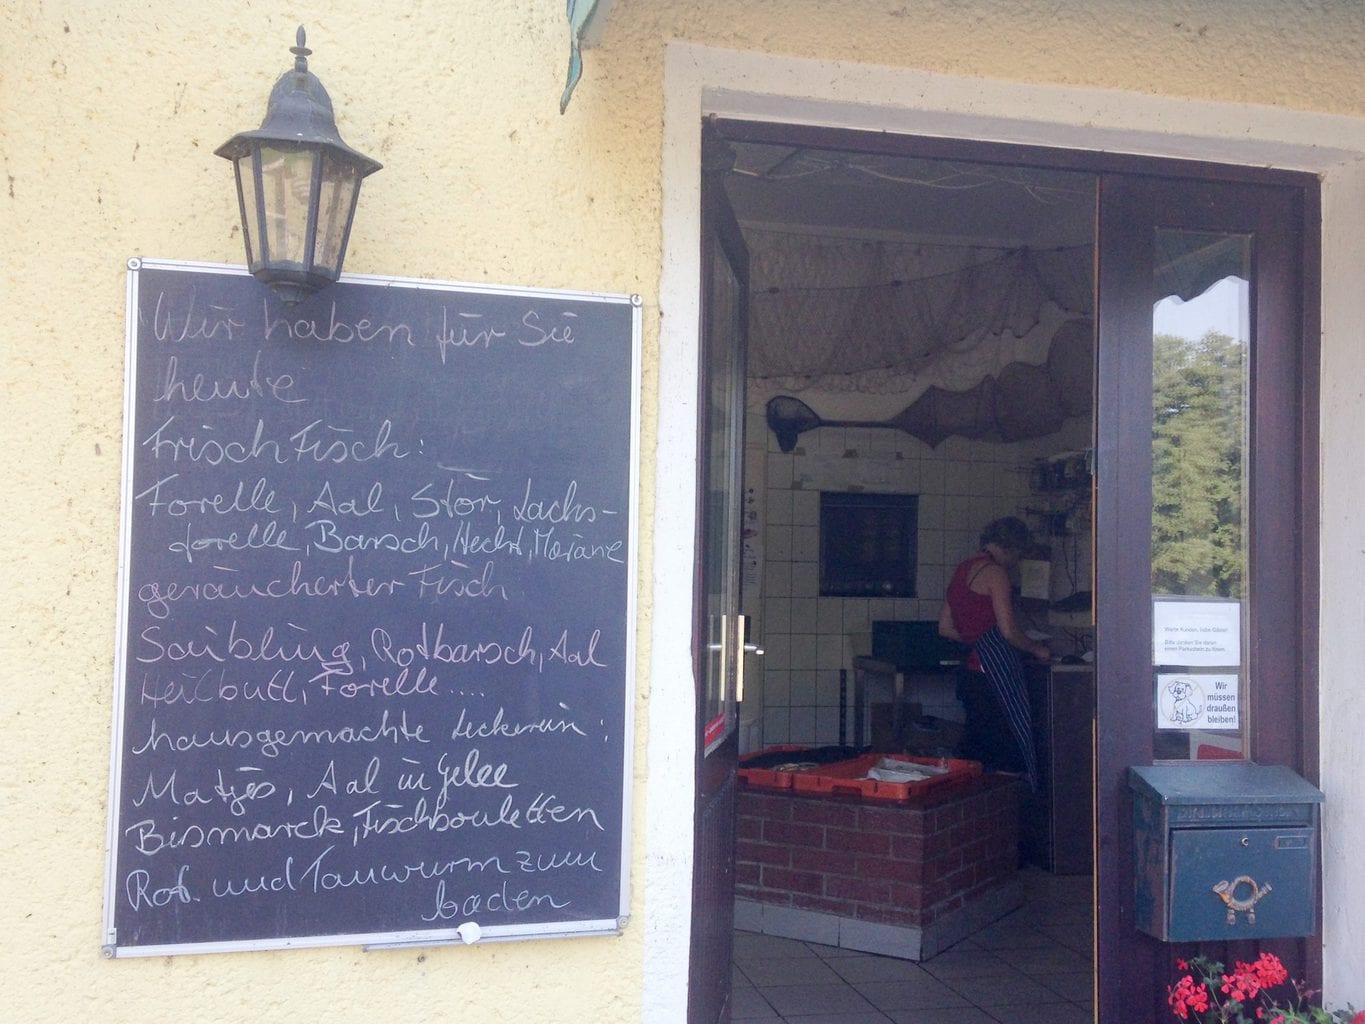 Wir haben für Sie
heute
Frisch Fisch:
Forelle, Aal, Stör, Lachs-
forelle, Barsch, Hecht, Maräne
geräucherter Fisch
Saibling, Rotbarsch, Aal
Heilbutt, Forelle.....
hausgemachte Leckerein:
Matjes, Aal in Gelee
Bismarck, Fischbouletten
Rot. und Tauwurm zum
baden
Werte Kunden, liebe Gäste!
Bitte denken Sie daran
einen Parkschein zu lösen.
Wir
müssen
draußen
bleiben!